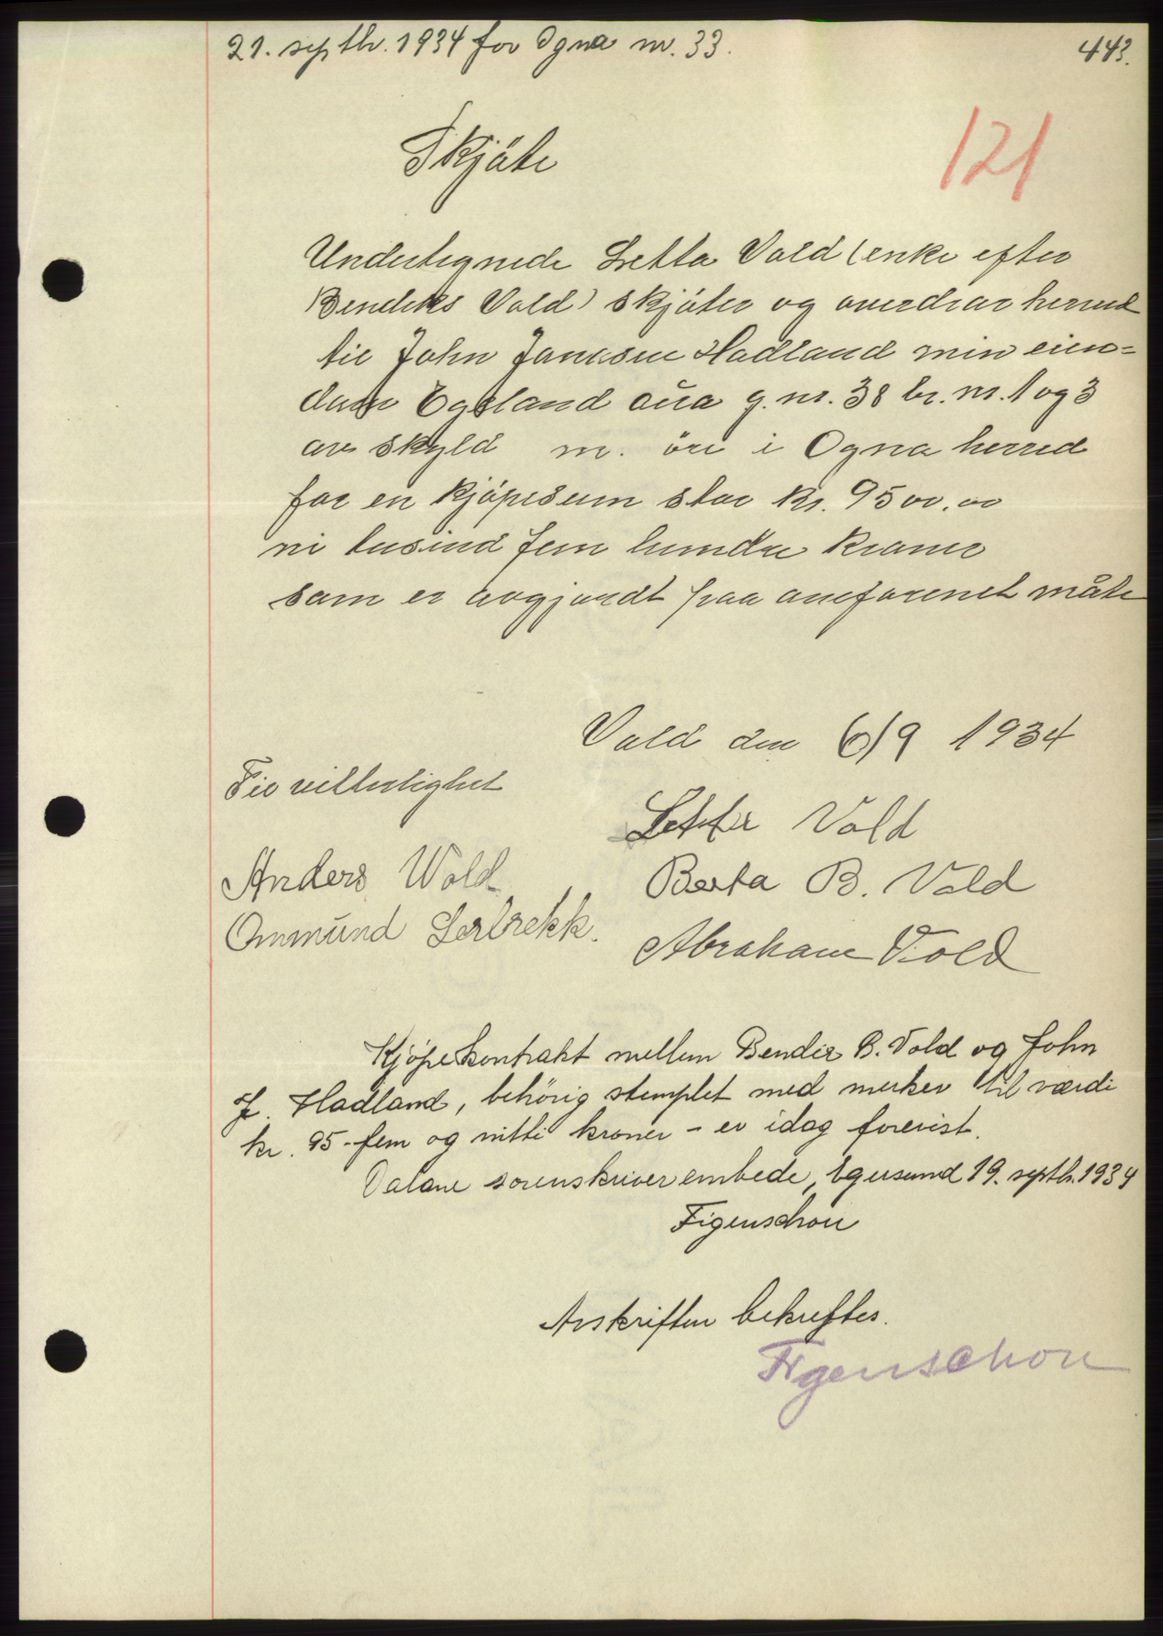 21. septbr. 1934 for Ogna nr. 33.
443.
121
Skjöte
Undertegnede Letta Vold (enke efter
Bendiks Vold) skjöter og overdrar herved
til John Jonassen Hadland min eien=
dom Egeland aua g.nr. 38 br.nr. 1 og 3
av skyld m. öre i Ogna herred
for en kjöpesum stor kr. 9500.00
ni tusind fem hundre kroner
som er avgjordt paa omforenet måte
Vold den 6/9 1934
Til vitterlighet
Letta Vold
Anders Wold
Berta B. Vold
Ommund Lerbrekk.
Abraham Vold
Kjöpekontrakt mellem Bendix B. Vold og John
J. Hadland, behörig stemplet med merker til værdi
kr. 95 - fem og nitti kroner - er idag forevist.
Dalane sorenskriverembede, Egersund 19. septbr. 1934
Figenschou
Avskriften bekreftes.
Figenschou